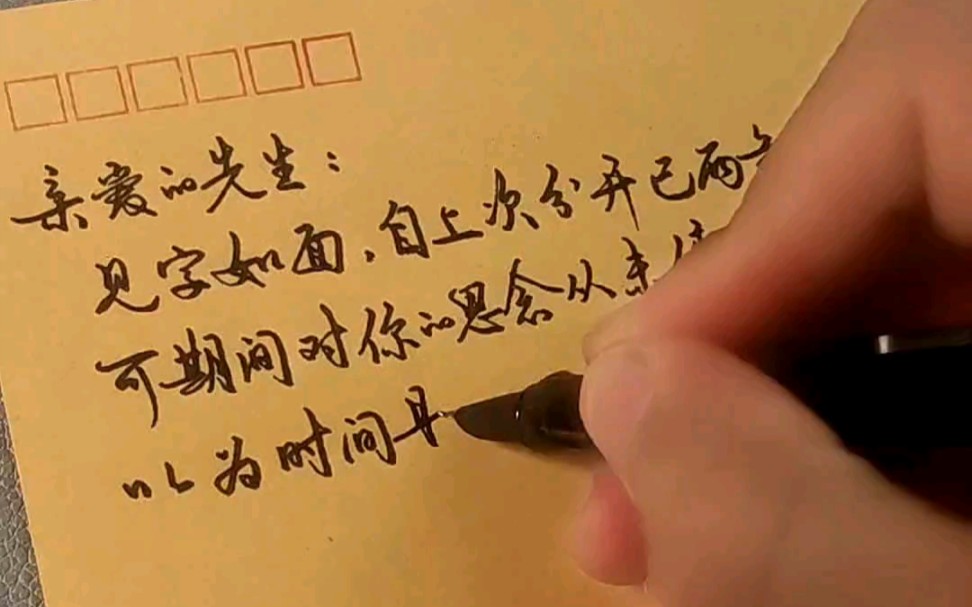 亲爱的先生：
见字如面，自上次分开已两
可期间对你的思念从未
以为时间